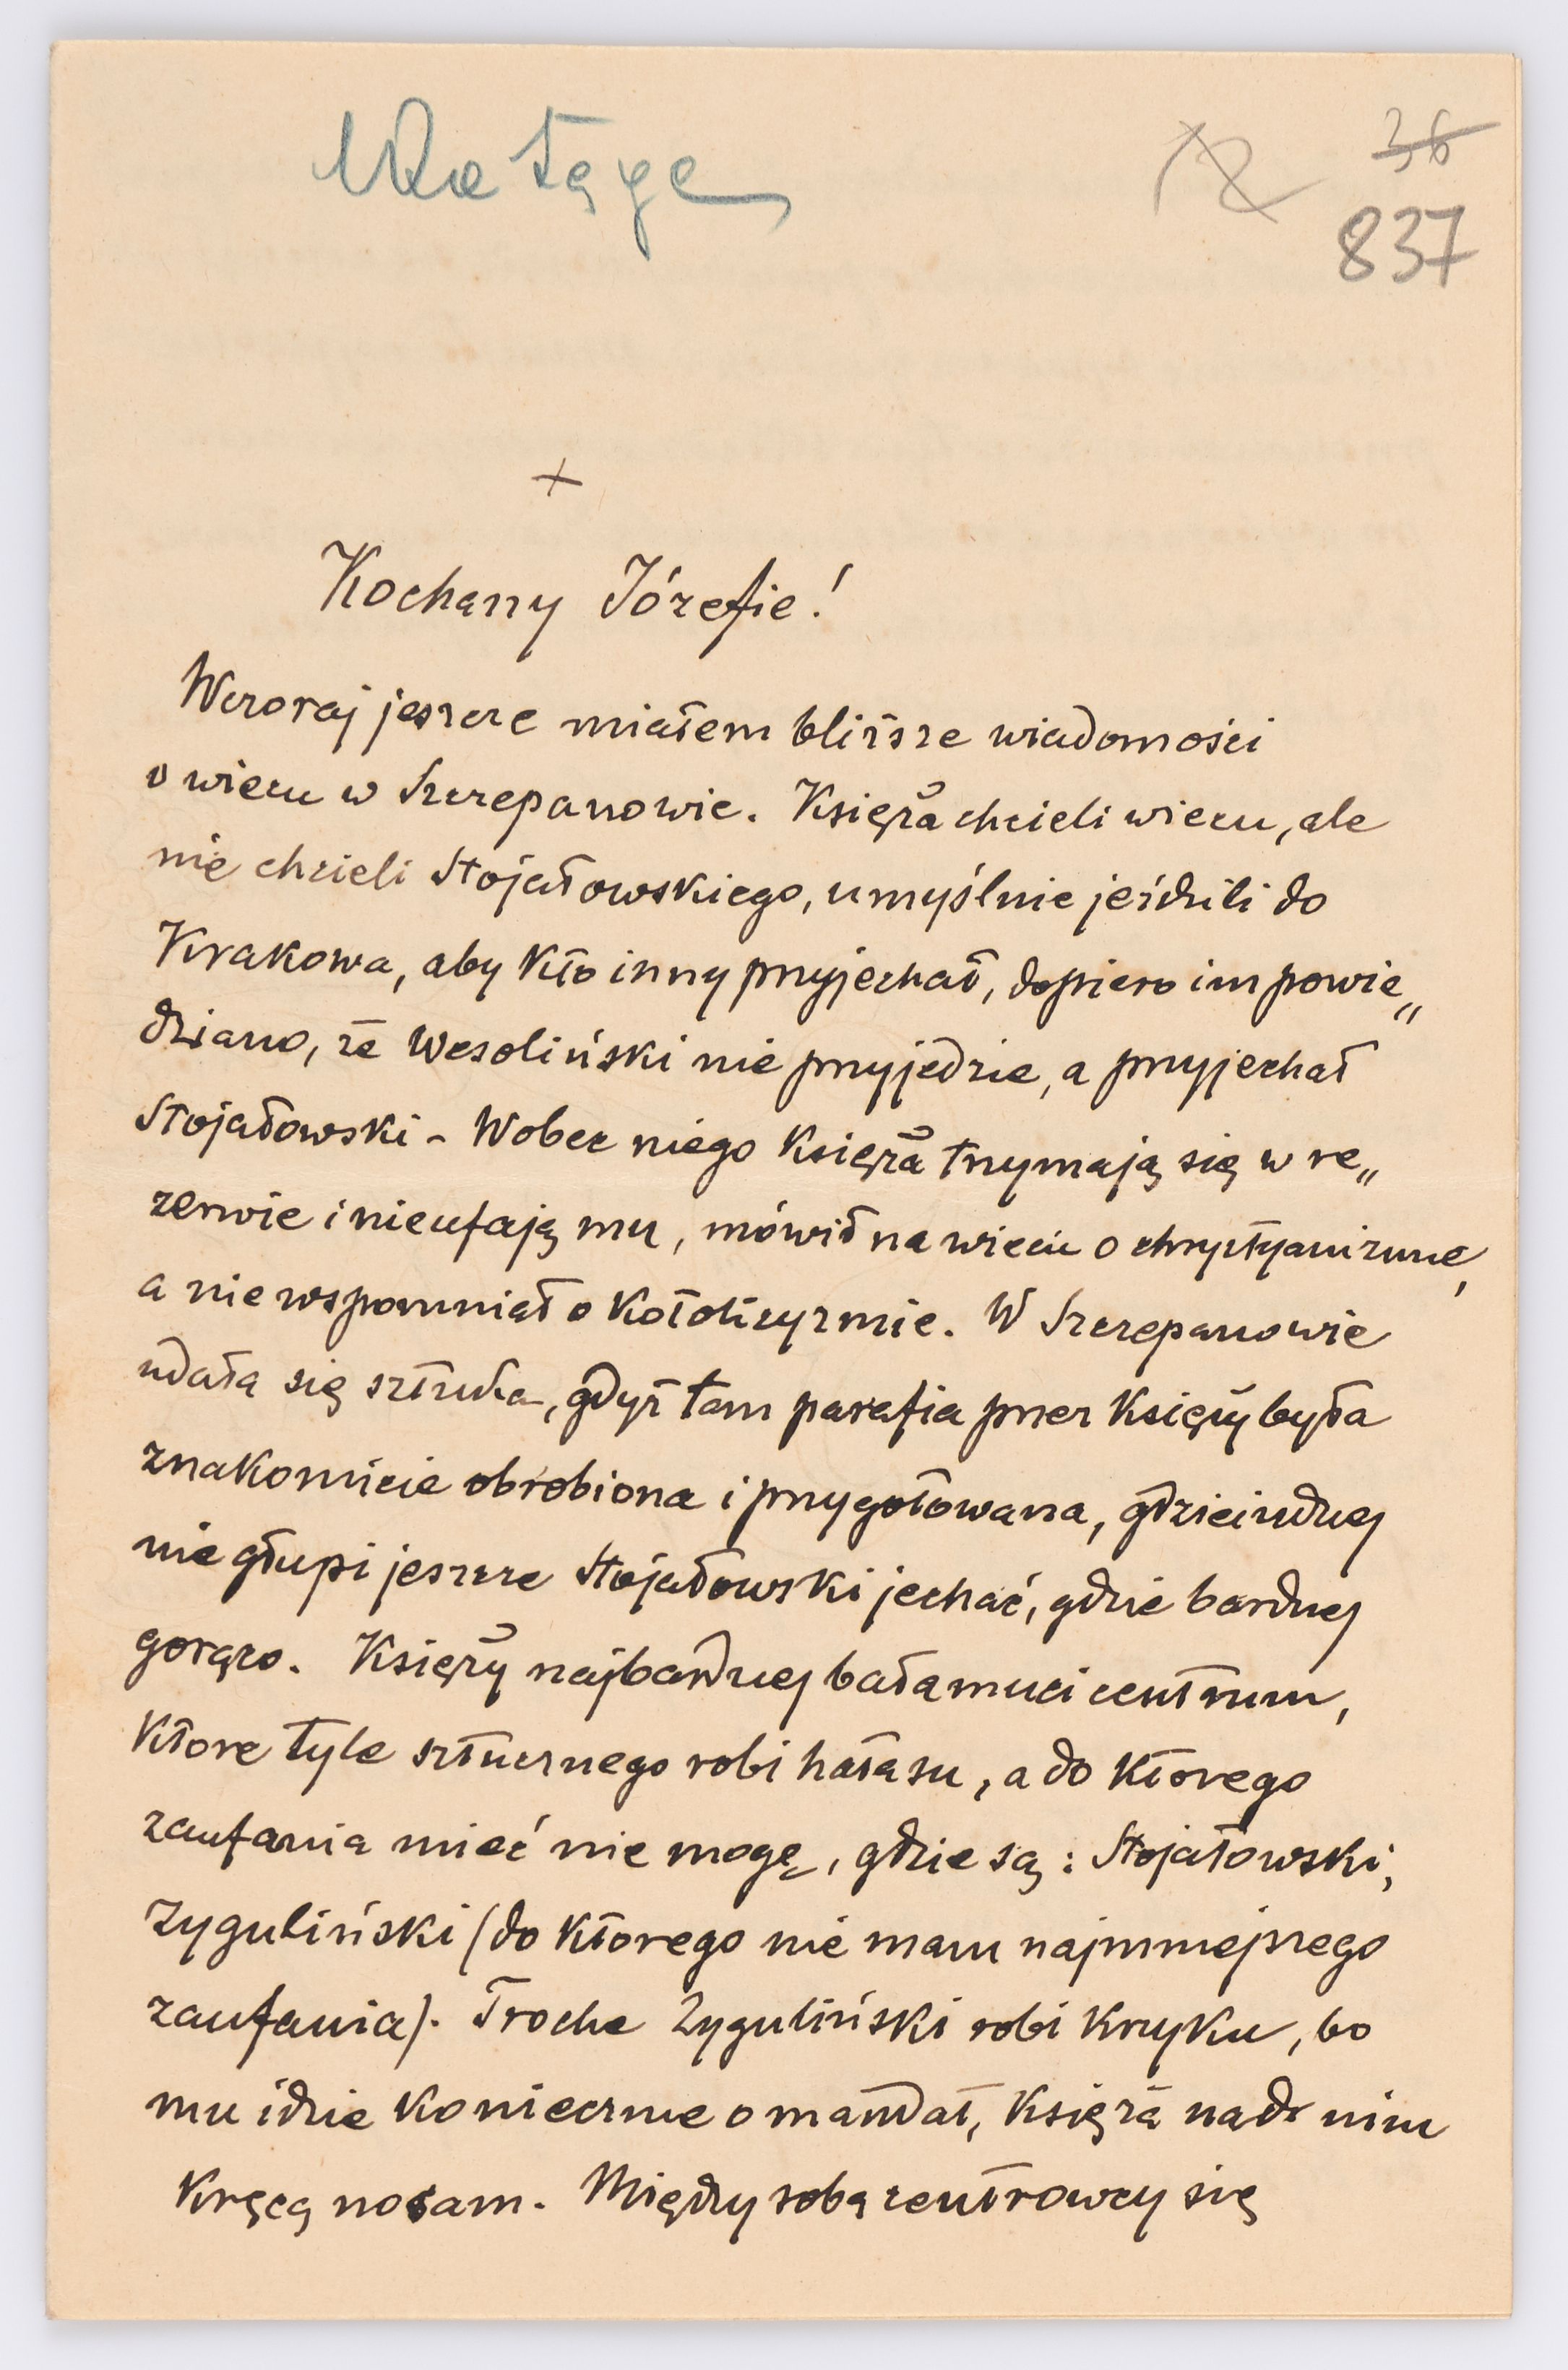 36
837
+
Kochany Józefie!
Wczoraj jeszcze miałem bliższe wiadomości
o wiecu w Szczepanowie. Księża chcieli wiecu, ale
nie chcieli Stojałowskiego, umyślnie jeździli do
Krakowa, aby kto inny przyjechał, dopiero im powie„
dziano, że Wesoliński nie przyjedzie, a przyjechał
Stojałowski - Wobec niego Księża trzymają się w re„
zerwie i nieufają mu, mówił na wiecu o chrystyanizmie,
a nie wspomniał o Kotolicyzmie. W Szczepanowie
udała się sztuka, gdyż tam parafia przez Księży była
znakomicie obrobiona i przygotowana, gdzieindziej
nie głupi jeszcze Stojałowski jechać, gdzie bardziej
gorąco. Księży najbardziej bałamuci centrum,
Które tyle sztucznego robi hałasu, a do Którego
zaufania mieć nie mogę, gdzie są: Stojałowski,
Zyguliński (do Którego nie mam najmniejszego
zaufania). Troche Zyguliński robi Krzyku, bo
mu idzie Koniecznie o mandat, Księża nad nim
Kręcą nosam. Między sobą centrowcy się